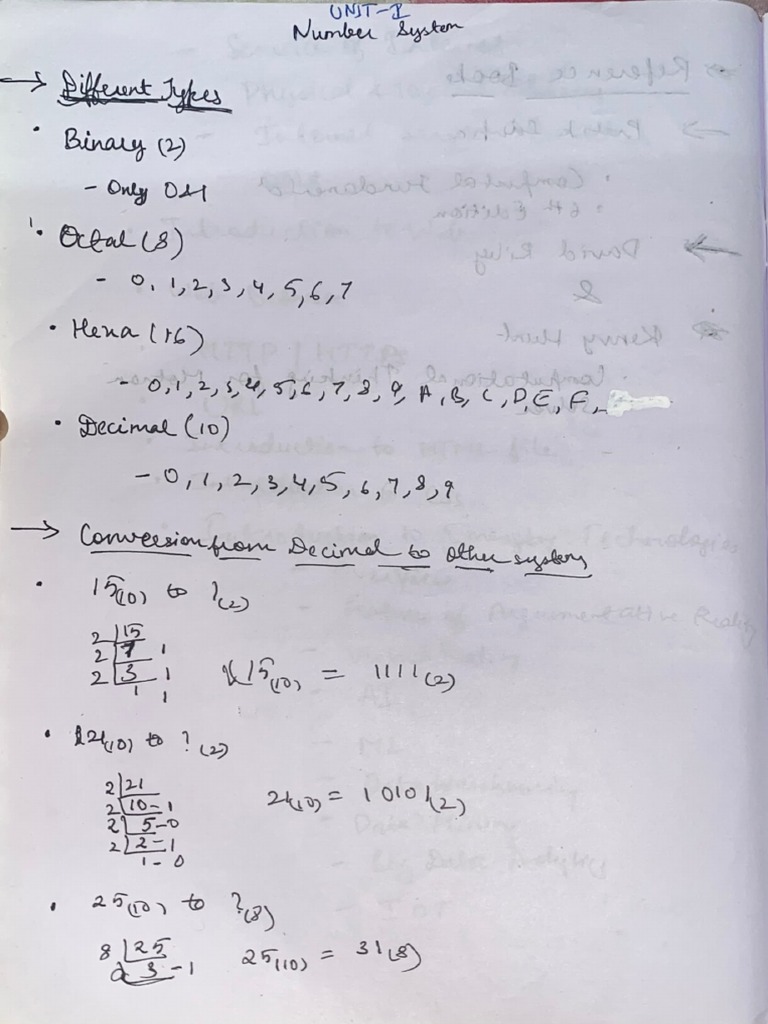 UNIT-I
Number System
→ Different Types
• Binary (2)
- Only 0 & 1
• Octal (8)
- 0, 1, 2, 3, 4, 5, 6, 7
• Hexa (16)
- 0, 1, 2, 3, 4, 5, 6, 7, 8, 9, A, B, C, D, E, F,
• Decimal (10)
- 0, 1, 2, 3, 4, 5, 6, 7, 8, 9
→ Conversion from Decimal to other system
• 15(10) to ?(2)
2 | 15
2 | 7 1
2 | 3 1
1 1
15(10) = 1111(2)
• 21(10) to ?(2)
2 | 21
2 | 10 - 1
2 | 5 - 0
2 | 2 - 1
1 - 0
21(10) = 10101(2)
• 25(10) to ?(8)
8 | 25
3 - 1
25(10) = 31(8)